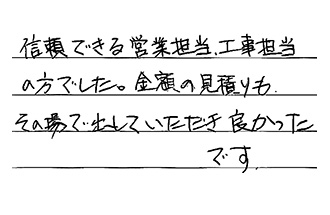 信頼できる営業担当、工事担当
の方でした。金額の見積りも、
その場で出していただき良かった
です。